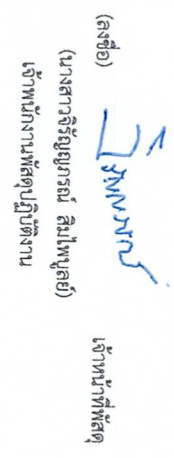 (ลงชื่อ) เจ้าหน้าที่พัสดุ
(นางสาวจิรัญญภรณ์ สิมไพบูลย์)
เจ้าพนักงานพัสดุปฏิบัติงาน